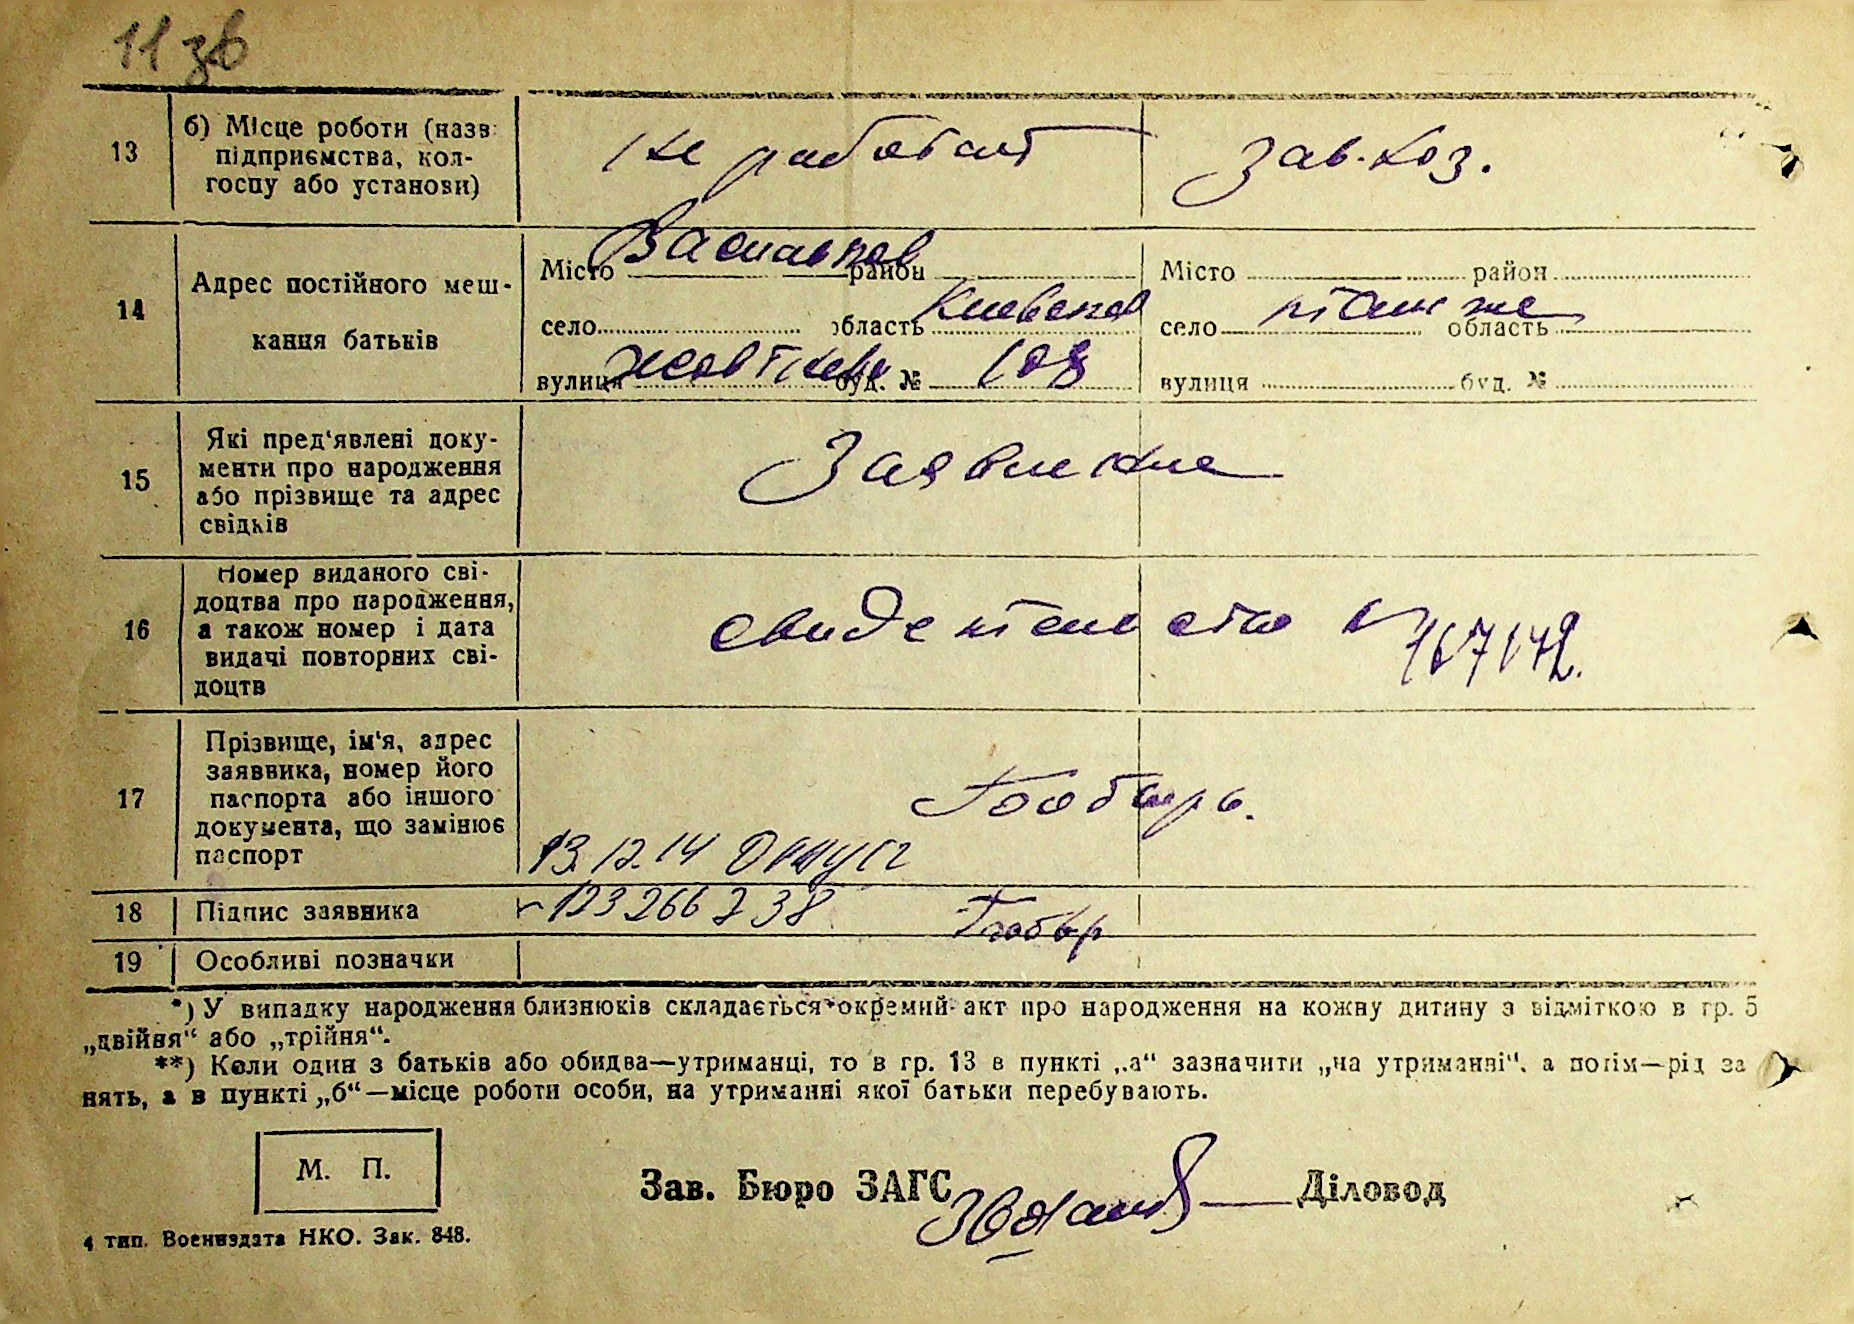 11 зв
13
б) Місце роботи (назв
підприємства, кол-
госпу або установи)
не работает
зав. хоз.
14
Адрес постійного меш-
кання батьків
Місто Васильков район
село область Киевская
вулиця Жовтнева буд. № 108
Місто район
село также область
вулиця буд. №
15
Які пред'явлені доку-
менти про народження
або прізвище та адрес
свідків
Заявление
16
Номер виданого сві-
доцтва про народження,
а також номер і дата
видачі повторних сві-
доцтв
свидетельство №
767172.
17
Прізвище, ім'я, адрес
заявника, номер його
паспорта або іншого
документа, що замінює
паспорт
13.12.14
18
Підпис заявника
123266238
19
Особливі позначки
*) У випадку народження близнюків складається окремий акт про народження на кожну дитину з відміткою в гр. 5
„двійня“ або „трійня“.
**) Коли один з батьків або обидва—утриманці, то в гр. 13 в пункті „а“ зазначити „на утриманні“, а потім—рід за
нять, а в пункті „б“—місце роботи особи, на утриманні якої батьки перебувають.
М. П.
Зав. Бюро ЗАГС
Діловод
4 тип. Воениздата НКО. Зак. 848.